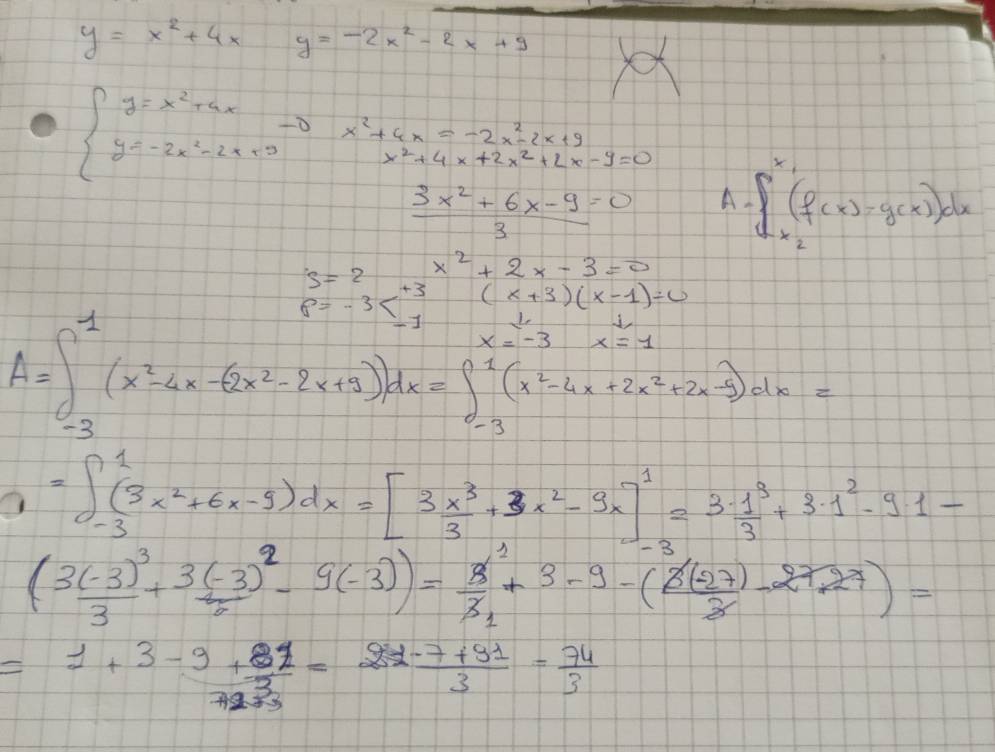 y = x² + 4x y = -2x² - 2x + 9
{ y = x² + 4x
y = -2x² - 2x + 9 → x² + 4x = -2x² - 2x + 9
x² + 4x + 2x² + 2x - 9 = 0
(3x² + 6x - 9)/3 = 0 A = ∫_{x₂}^{x₁} (f(x) - g(x)) dx
x² + 2x - 3 = 0
S = 2
P = -3 < +3 -1 (x+3)(x-1) = 0
x = -3 x = 1
A = ∫_{-3}^{1} (x² - 4x - (-2x² - 2x + 9)) dx = ∫_{-3}^{1} (x² - 4x + 2x² + 2x - 9) dx =
= ∫_{-3}^{1} (3x² + 6x - 9) dx = [3x³/3 + 3x² - 9x]_{-3}^{1} = 3·1³/3 + 3·1² - 9·1 -
(3(-3)³/3 + 3(-3)² - 9(-3)) = 3/3 + 3 - 9 - (3(-27)/3 - 27+27) =
= 1 + 3 - 9 + 81/3 = -7 + 81/3 = 74/3